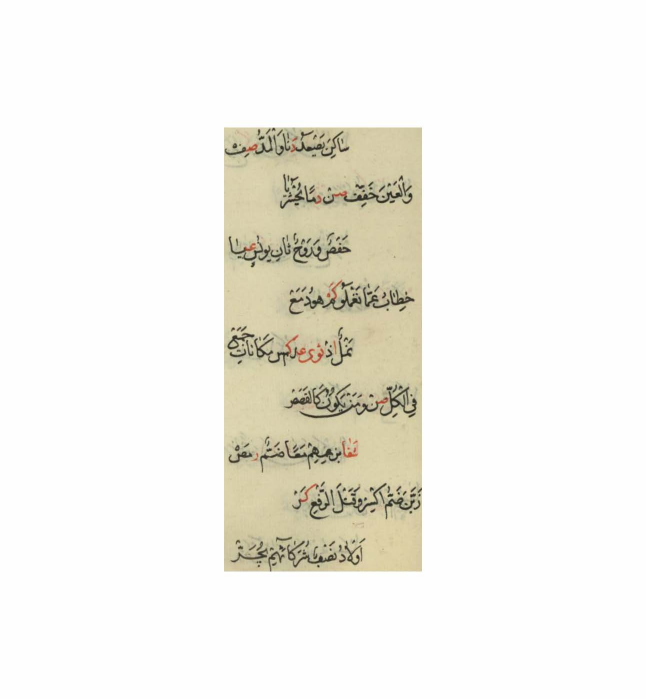 سَاكِنَ يَصْعَدُ دَنَا وَالْمَدُّ صِف
وَالْعَيْنَ خَفِّفْ صُنْ دُمَا يُحْشَرُ يَا
حَفْصٌ وَرَوْحٌ ثَانِ يُونُسٍ عَيَا
خِطَابُ عَمَّا تَعْمَلُو كَمْ هُودَ مَعْ
نَمْلٍ اذْ ثَوَى عُد كِس مَكَانَاتٍ جَمَعْ
فِي الْكُلِّ صِنْ وَمَنْ يَكُونُ كَالْقَصَصْ
شَفَا بِزعمِهِم مَعًا ضَمَّ رمَصْ
زَيَّنَ ضُمَّ اكْسِر وَقَتْلَ الرَّفْعِ كَرْ
أَوْلَادُ نَصْبُ شُرَكَائِهِمْ بِجَرّ